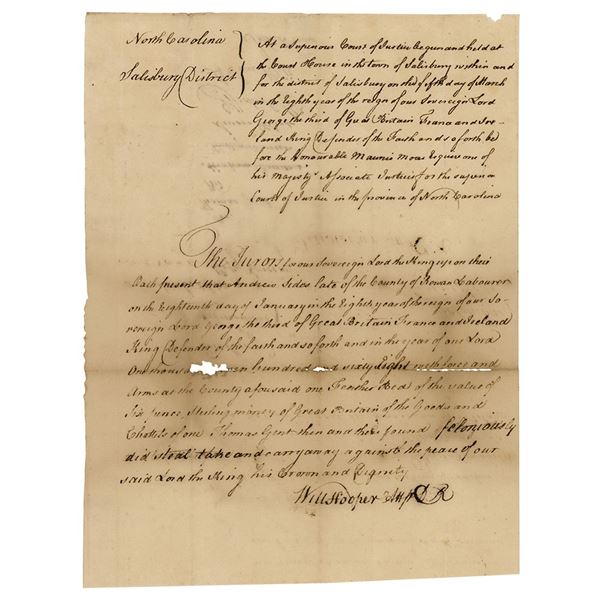 North Carolina
Salisbury District
At a Superiour Court of Justice begun and held at
the Court House in the town of Salisbury within and
for the district of Salisbury on the fifth day of March
in the Eighth year of the reign of our Sovereign Lord
George the third of Great Britain France and Ire-
land King Defender of the Faith and so forth be
fore the Honourable Maurice Moore Esquire one of
his Majestys Associate Justices for the superior
Courts of Justice in the province of North Carolina
The Jurors for our Sovereign Lord the King upon their
Oath present that Andrew Sides late of the County of Rowan Labourer
on the Eighteenth day of January in the Eighth year of the reign of our So-
vereign Lord George the third of Great Britain France and Ireland
King Defender of the faith and so forth and in the year of our Lord
One thousand seven hundred and sixty Eight with force and
Arms at the County aforesaid one Feather Bed of the value of
Six pence Sterling money of Great Britain of the Goods and
Chattels of one Thomas Gent then and there found feloniously
did steal take and carry away against the peace of our
said Lord the King his Crown and Dignity
Will Hooper Att D R